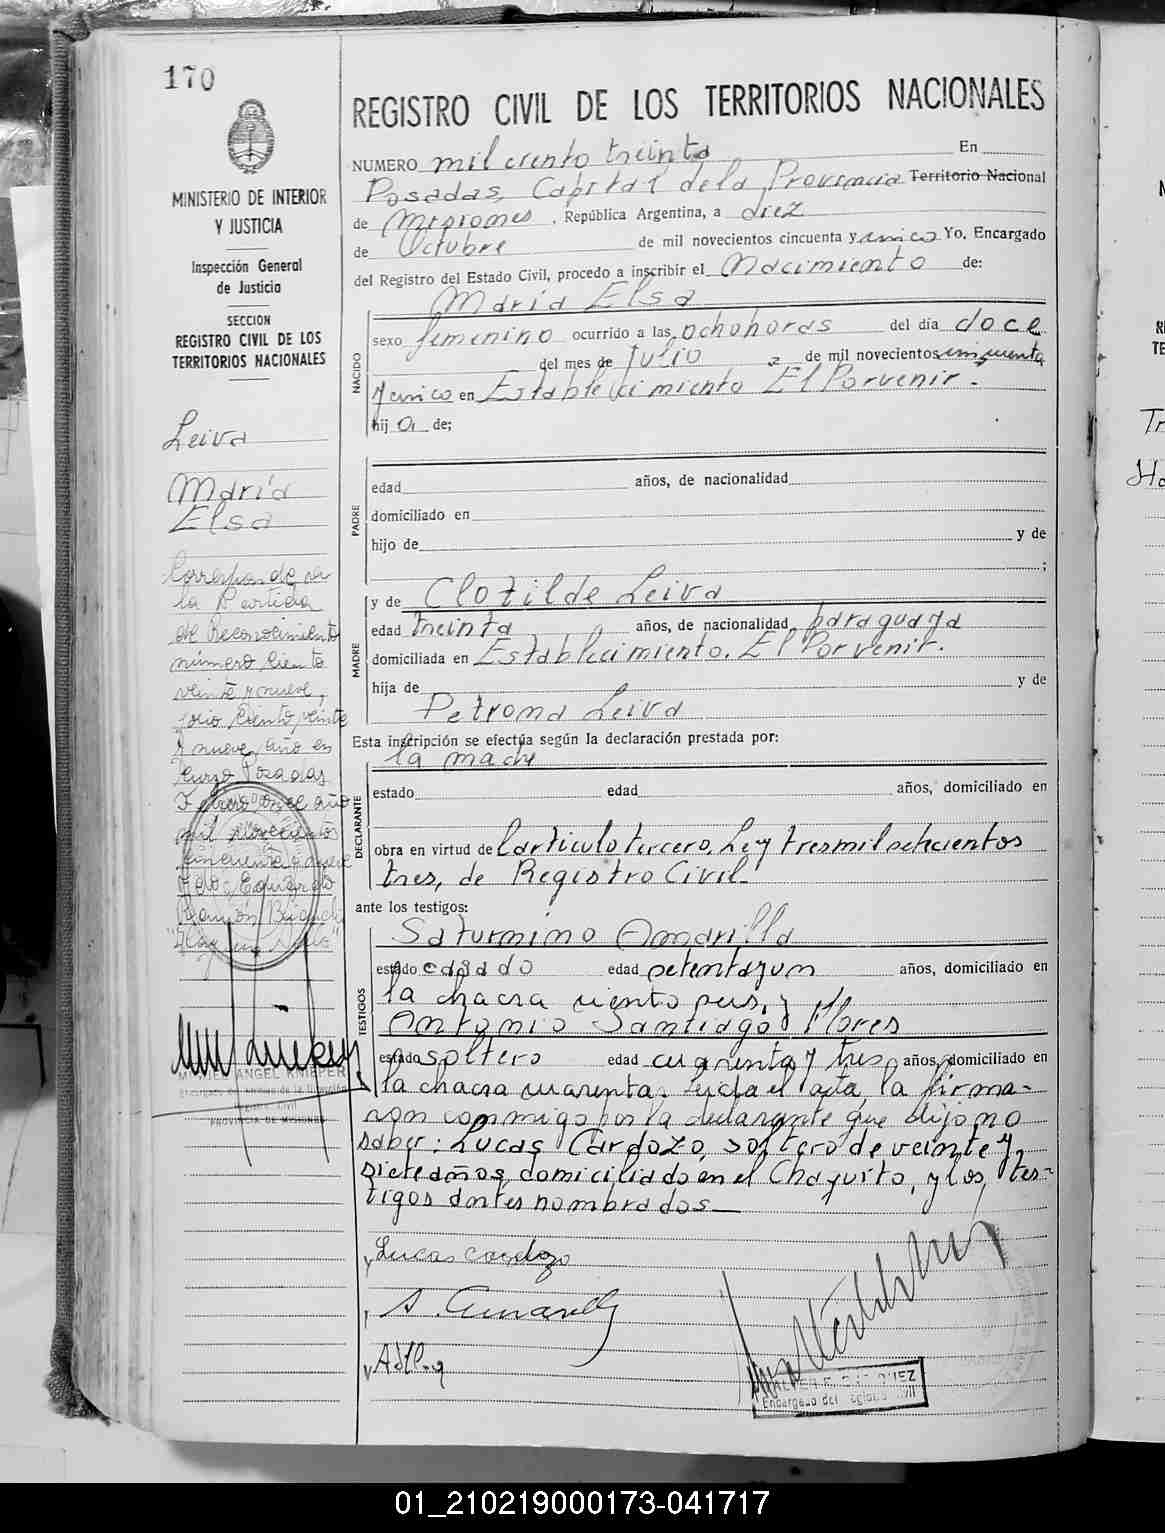 170
MINISTERIO DE INTERIOR
Y JUSTICIA
Inspección General
de Justicia
SECCION
REGISTRO CIVIL DE LOS
TERRITORIOS NACIONALES
Leiva
María
Elsa
Corresponde a
la Partida
de Reconocimiento
número ciento
veinte y nueve,
folio ciento veinte
y nueve, año en
curso Posadas
Febrero once año
mil novecientos
cincuenta y nueve
MIGUEL ANGEL KNEPER
PROVINCIA DE MISIONES
REGISTRO CIVIL DE LOS TERRITORIOS NACIONALES
NUMERO mil ciento treinta En
Posadas, Capital de la Provincia Territorio Nacional
de Misiones, República Argentina, a diez
de Octubre de mil novecientos cincuenta y cinco Yo, Encargado
del Registro del Estado Civil, procedo a inscribir el Nacimiento de:
María Elsa
NACIDO
sexo femenino ocurrido a las ocho horas del día doce
del mes de Julio de mil novecientos cincuenta
y cinco en Establecimiento "El Porvenir".
hij a de;
PADRE
edad años, de nacionalidad
domiciliado en
hijo de y de
;
MADRE
y de Clotilde Leiva
edad treinta años, de nacionalidad paraguaya
domiciliada en Establecimiento. El Porvenir.
hija de y de
Petrona Leiva
Esta inscripción se efectúa según la declaración prestada por:
la madre
DECLARANTE
estado edad años, domiciliado en
obra en virtud de l artículo tercero, Ley tres mil setecientos
tres, de Registro Civil.
ante los testigos:
TESTIGOS
Saturnino Amarilla
estado casado edad setenta y un años, domiciliado en
la chacra ciento seis, y
Antonio Santiago Flores
estado soltero edad cuarenta y tres años, domiciliado en
la chacra cuarenta; leída el acta, la firma-
ron conmigo por la declarante que dijo no
saber: Lucas Cardozo, soltero de veinte y
siete años, domiciliado en el Chaquito, y los tes-
tigos antes nombrados
Lucas cardozo
Encargado del Registro Civil
01_210219000173-041717